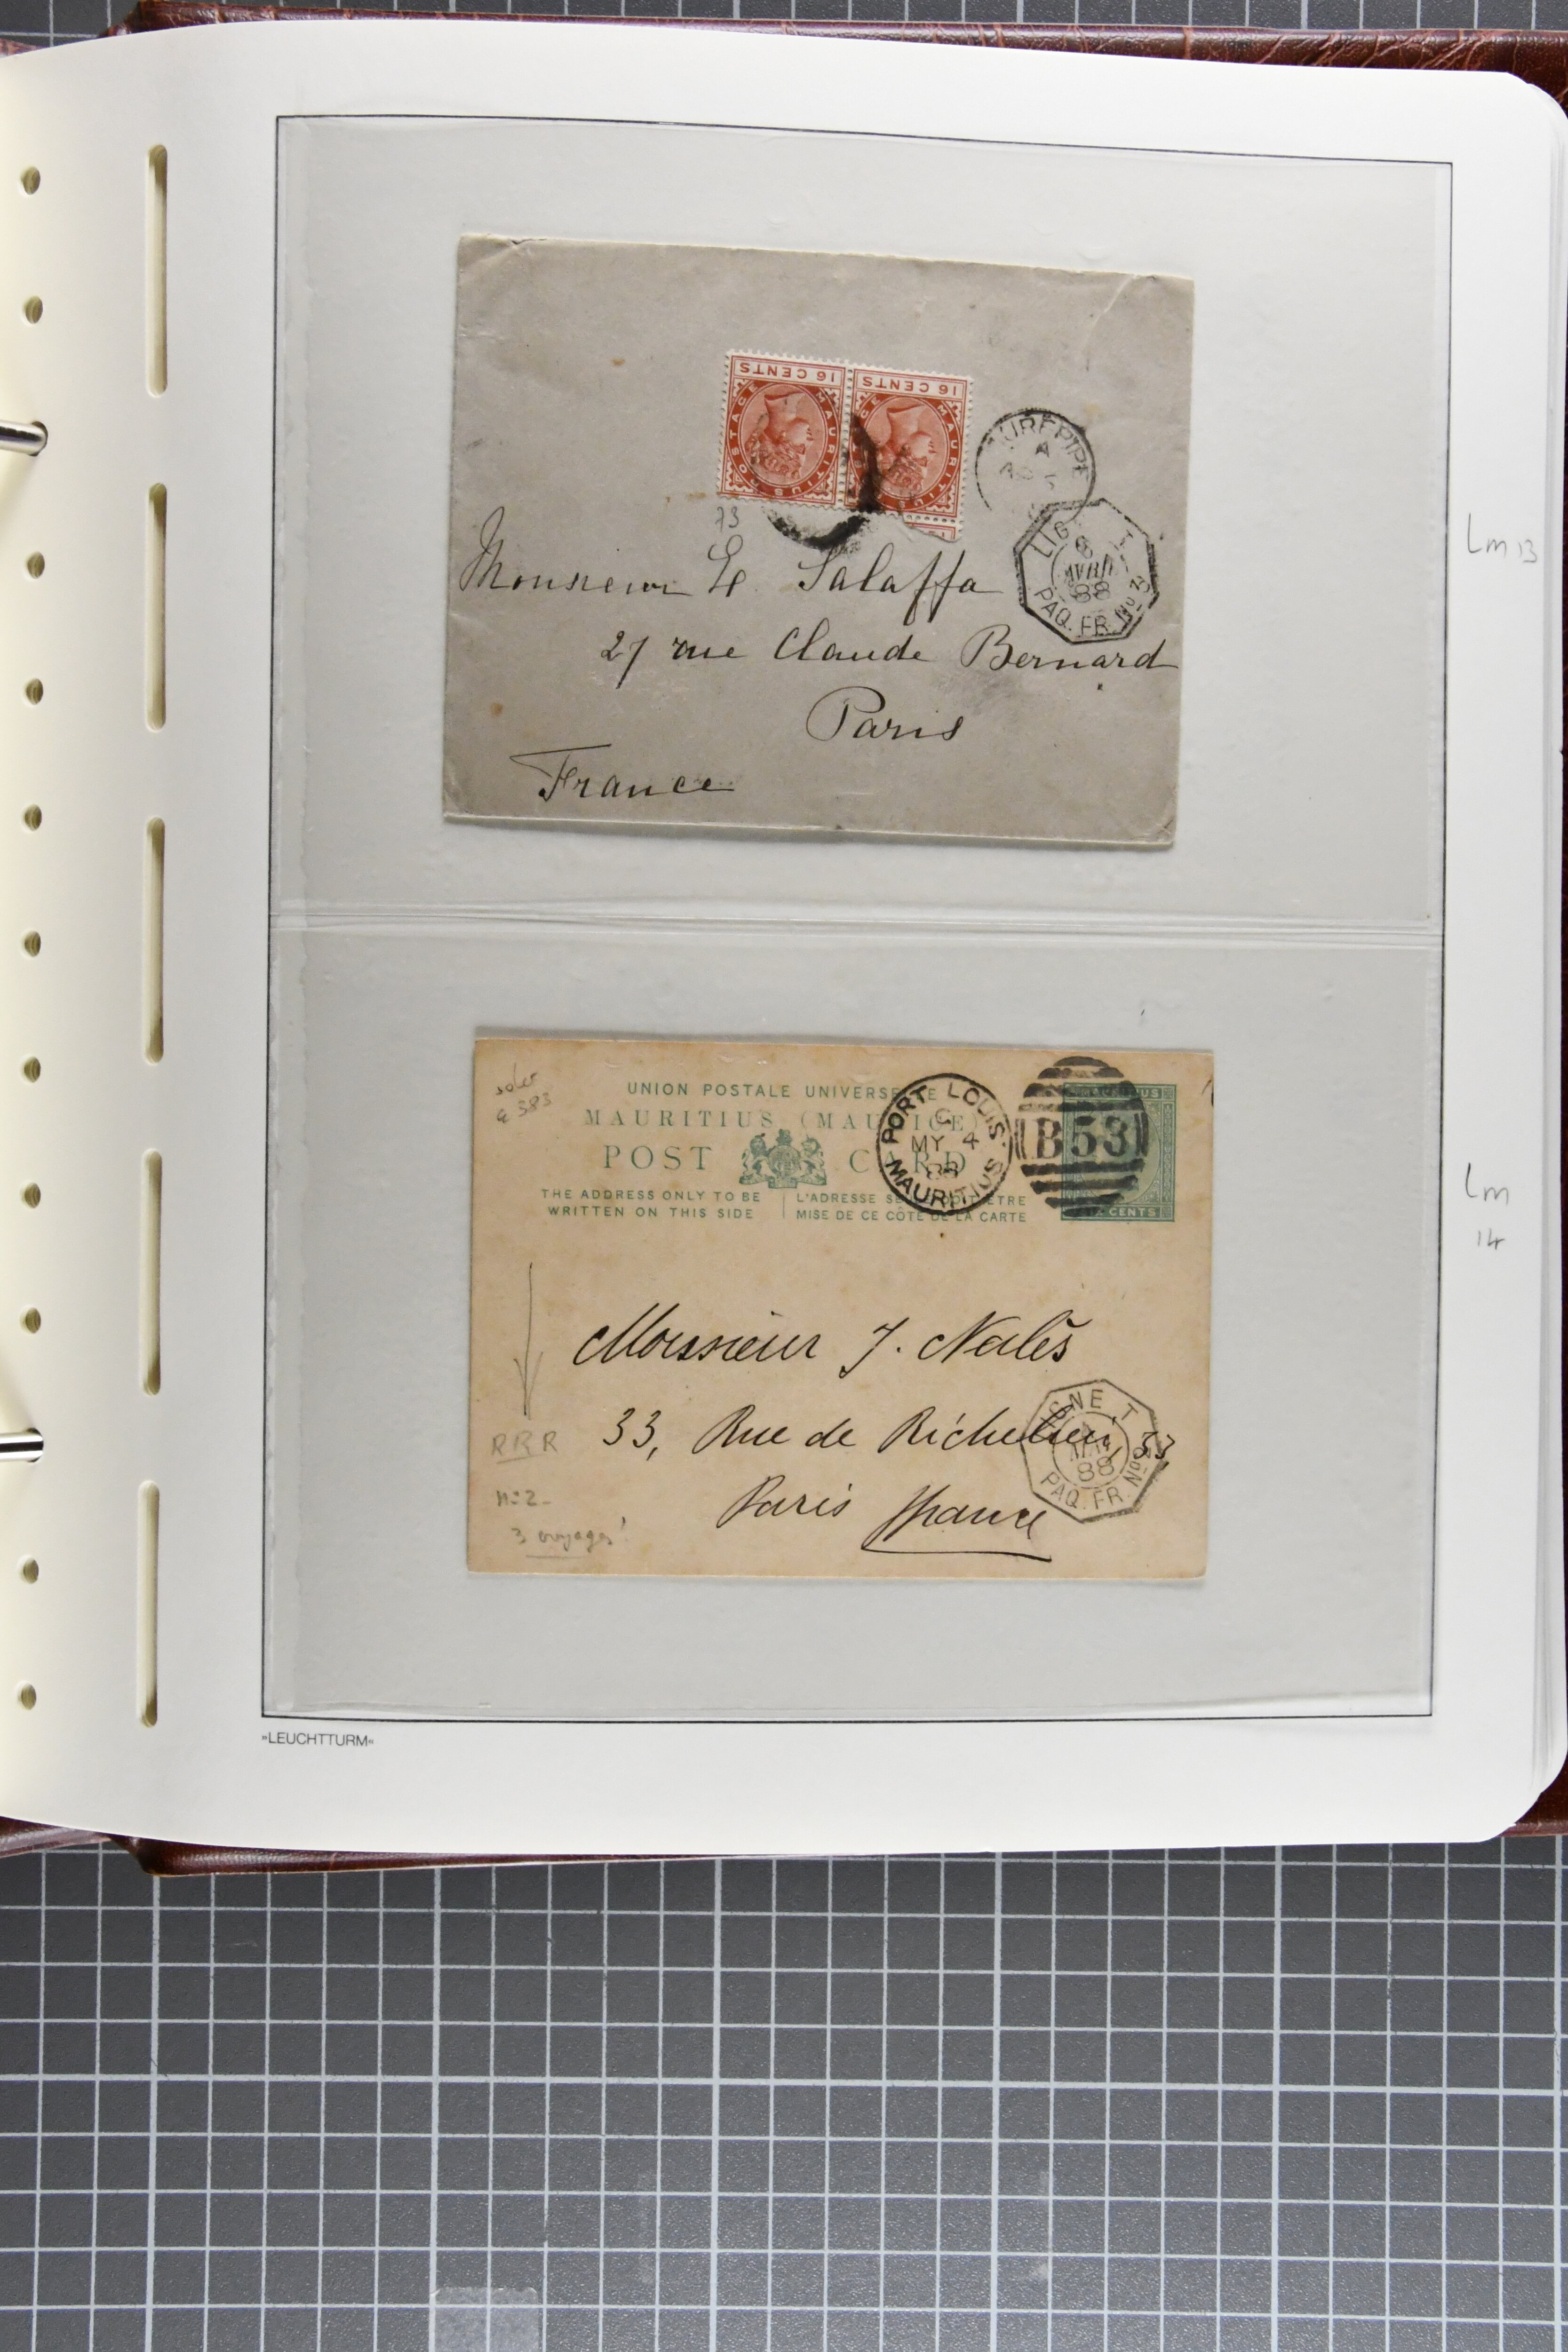 16 CENTS
16 CENTS
MAURITIUS POSTAGE
MAURITIUS
CUREPIPE
A
73
LIG T
6
AVRIL
88
PAQ. FR. No 3
Lm 13
Monsieur E. Salaffa
27 rue Claude Bernard
Paris
France
UNION POSTALE UNIVERSELLE
MAURITIUS (MAURICE)
POST CARD
THE ADDRESS ONLY TO BE
WRITTEN ON THIS SIDE
L'ADRESSE SEULE DOIT ÊTRE
MISE DE CE CÔTÉ DE LA CARTE
PORT LOUIS
C
MY 4
88
MAURITIUS
B53
MAURITIUS
SIX CENTS
Lm
14
Monsieur J. Nalès
33, Rue de Richelieu, 33
Paris France
GNE T
MAI
88
PAQ. FR. No
RRR
no 2-
3 voyages!
»LEUCHTTURM«